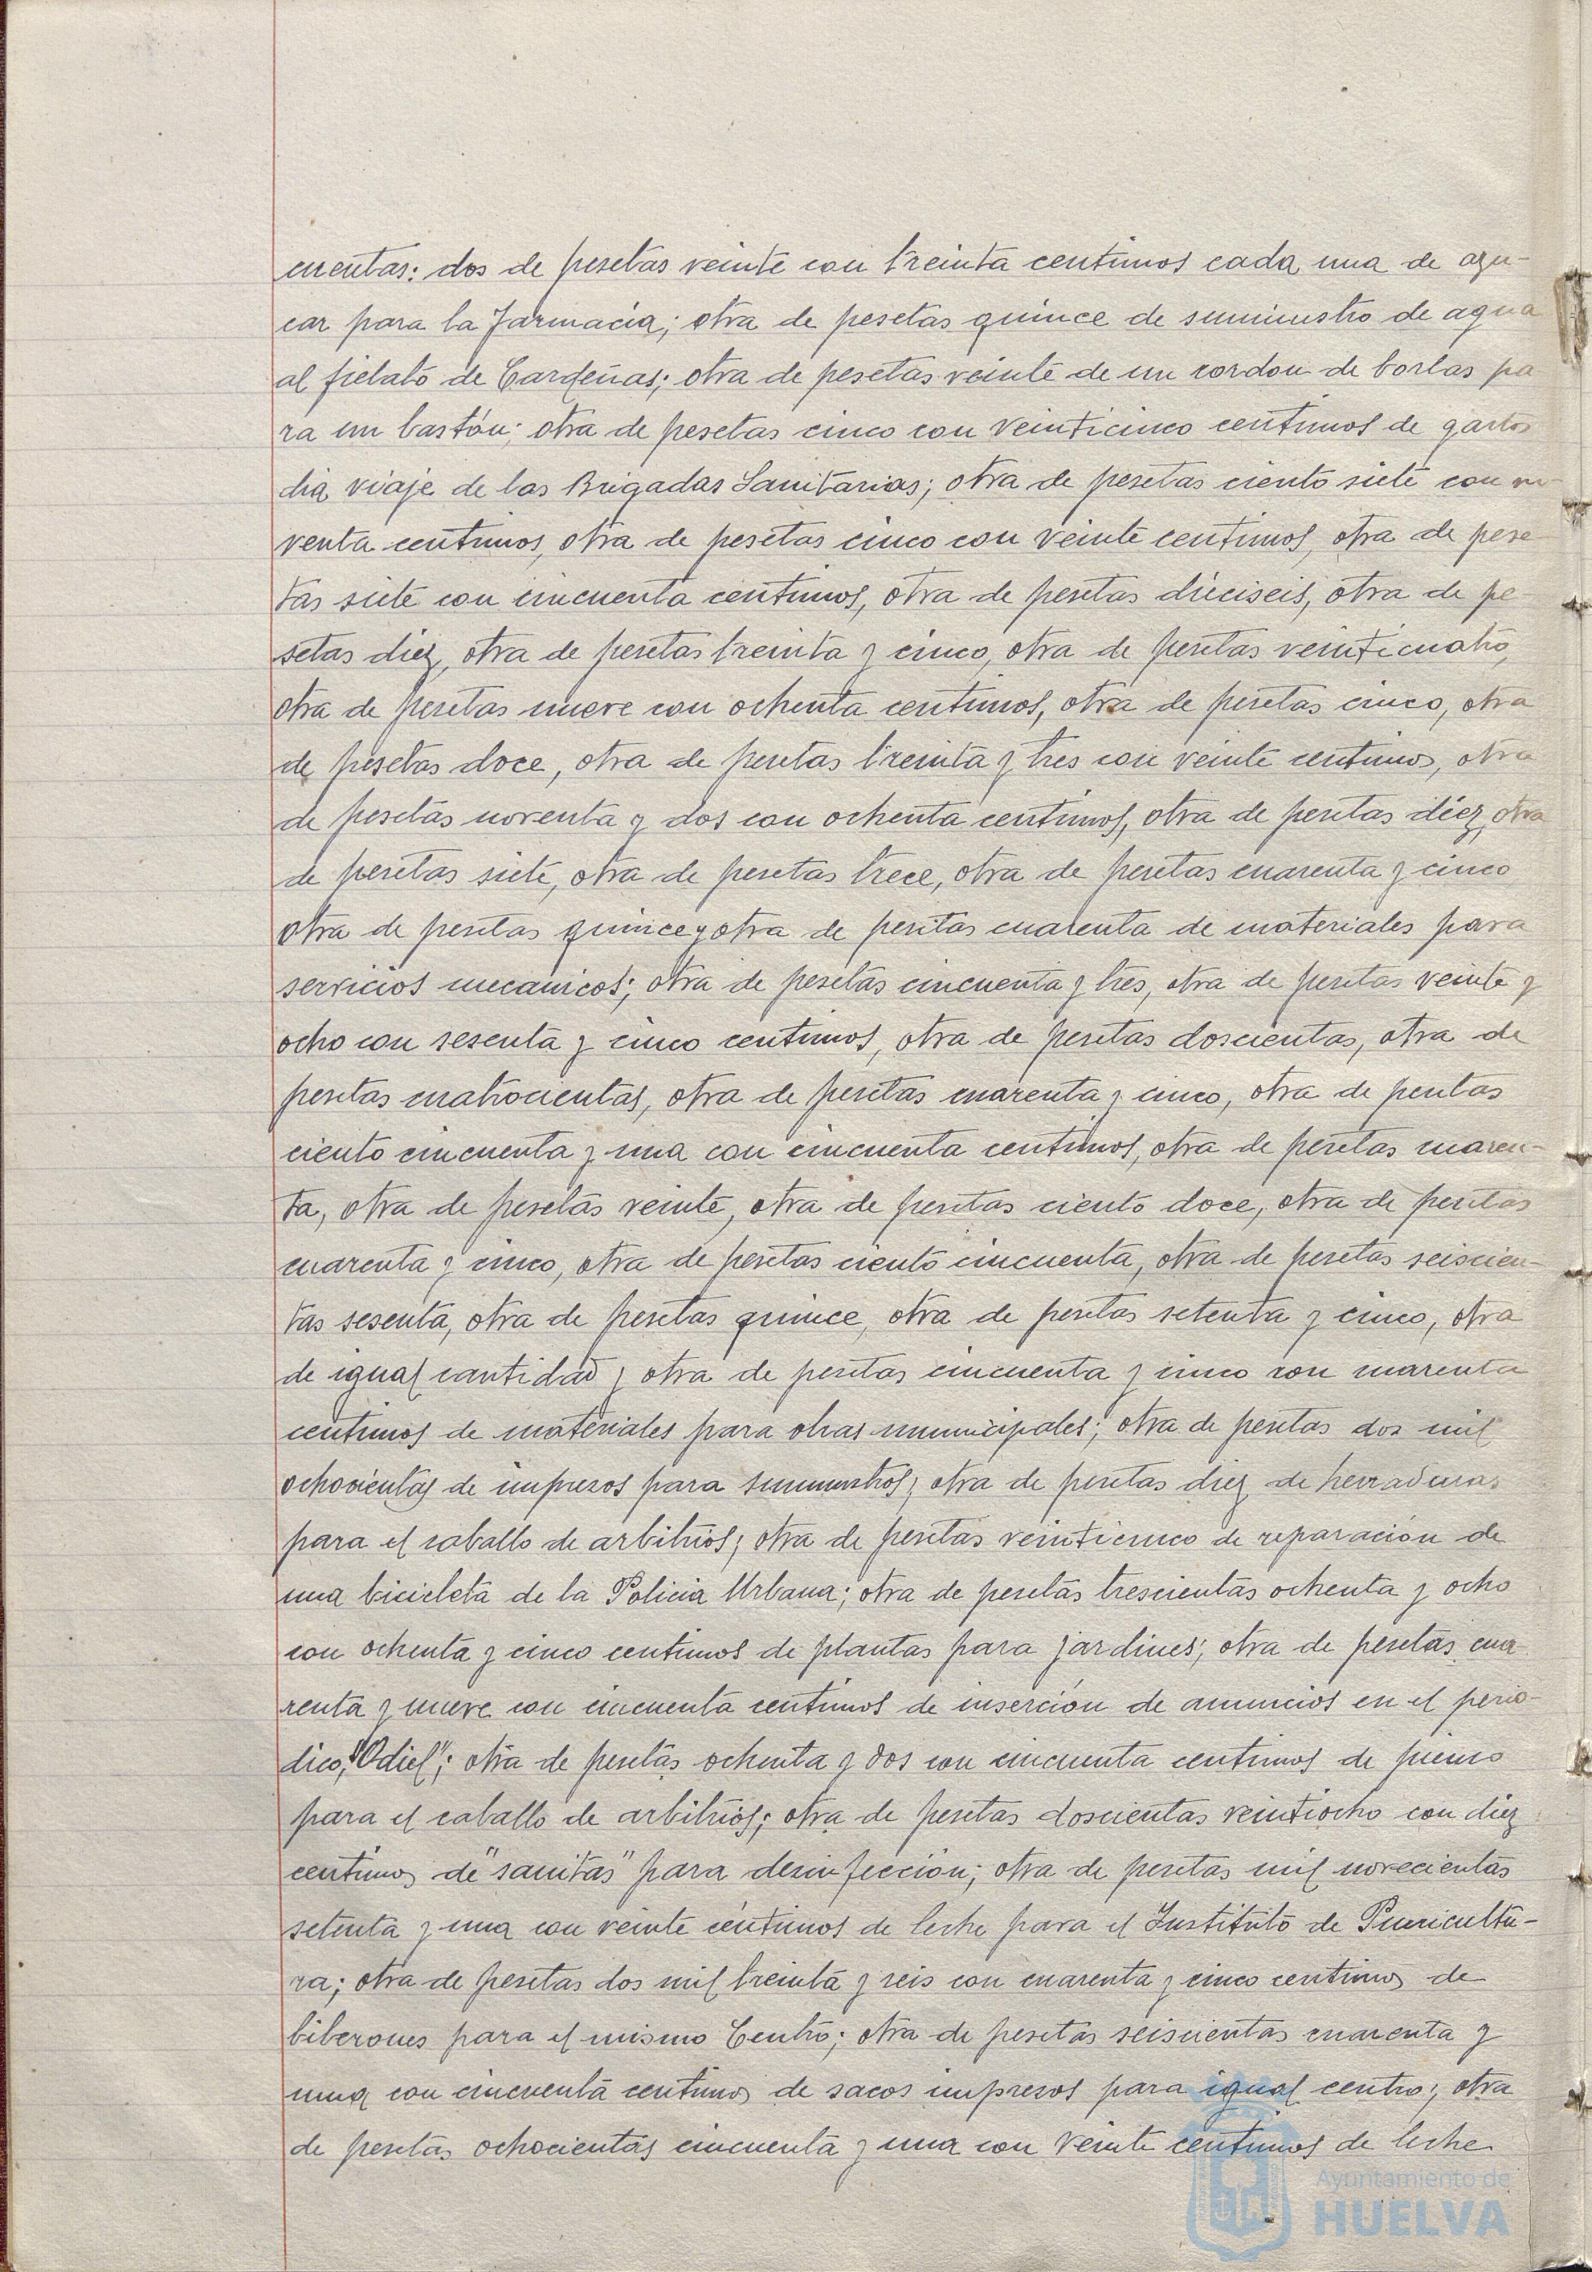 cuentas: dos de pesetas veinte con treinta centimos cada una de azu-
car para la Farmacia; otra de pesetas quince de suministro de agua
al fielato de Cardeñas; otra de pesetas veinte de un cordon de borlas pa
ra un bastón; otra de pesetas cinco con veinticinco centimos de gastos
dia viaje de las Brigadas Sanitarias; otra de pesetas ciento siete con no-
venta centimos, otra de pesetas cinco con veinte centimos, otra de pese-
tas siete con cincuenta centimos, otra de pesetas dieciseis, otra de pe-
setas diez, otra de pesetas treinta y cinco, otra de pesetas veinticuatro,
otra de pesetas nueve con ochenta centimos, otra de pesetas cinco, otra
de pesetas doce, otra de pesetas treinta y tres con veinte centimos, otra
de pesetas noventa y dos con ochenta centimos, otra de pesetas diez, otra
de pesetas siete, otra de pesetas trece, otra de pesetas cuarenta y cinco
otra de pesetas quince y otra de pesetas cuarenta de materiales para
servicios mecanicos; otra de pesetas cincuenta y tres, otra de pesetas veinte y
ocho con sesenta y cinco centimos, otra de pesetas doscientas, otra de
pesetas cuatrocientas, otra de pesetas cuarenta y cinco, otra de pesetas
ciento cincuenta y una con cincuenta centimos, otra de pesetas cuaren-
ta, otra de pesetas veinte, otra de pesetas ciento doce, otra de pesetas
cuarenta y cinco, otra de pesetas ciento cincuenta, otra de pesetas seiscien-
tas sesenta, otra de pesetas quince, otra de pesetas setenta y cinco, otra
de igual cantidad y otra de pesetas cincuenta y cinco con cuarenta
centimos de materiales para obras municipales; otra de pesetas dos mil
ochocientas de impresos para suministros; otra de pesetas diez de herraduras
para el caballo de arbitrios; otra de pesetas veinticinco de reparación de
una bicicleta de la Policia Urbana; otra de pesetas trescientas ochenta y ocho
con ochenta y cinco centimos de plantas para jardines; otra de pesetas cua-
renta y nueve con cincuenta centimos de inserción de anuncios en el perio-
dico, "Odiel"; otra de pesetas ochenta y dos con cincuenta centimos de pienso
para el caballo de arbitrios; otra de pesetas doscientas veintiocho con diez
centimos de "sanitas" para desinfección; otra de pesetas mil novecientas
setenta y una con veinte centimos de leche para el Instituto de Puericultu-
ra; otra de pesetas dos mil treinta y seis con cuarenta y cinco centimos de
biberones para el mismo Centro; otra de pesetas seiscientas cuarenta y
una con cincuenta centimos de sacos impresos para igual centro; otra
de pesetas ochocientas cincuenta y una con veinte centimos de leche
Ayuntamiento de
HUELVA